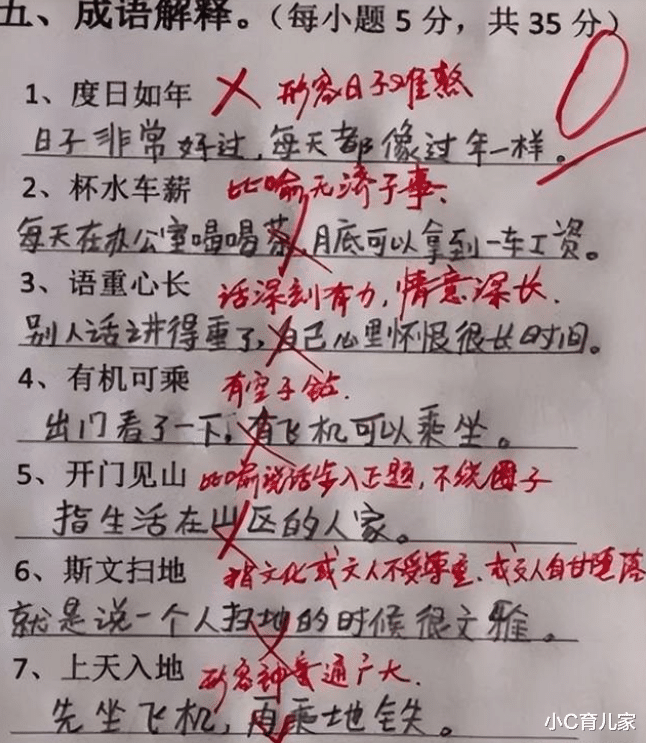 五、成语解释。（每小题 5 分，共 35 分）
0
1、度日如年 形容日子难熬
日子非常好过，每天都像过年一样。
2、杯水车薪 比喻无济于事。
每天在办公室喝喝茶，月底可以拿到一车工资。
3、语重心长 话深刻有力，情意深长．
别人话讲得重了，自己心里怀恨很长时间。
4、有机可乘 有空子钻．
出门看了一下，有飞机可以乘坐。
5、开门见山 比喻说话步入正题，不绕圈子
指生活在山区的人家。
6、斯文扫地 指文化或文人不受尊重．或文人自甘堕落
就是说一个人扫地的时候很文雅。
7、上天入地 形容神通广大．
先坐飞机，再乘地铁。
小C育儿家